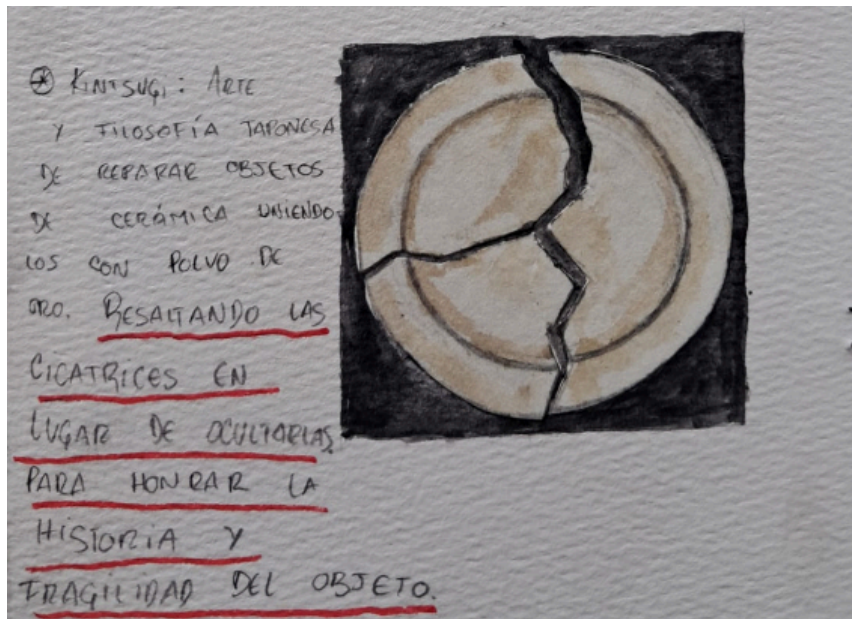 ⊛ KINTSUGI: ARTE
Y FILOSOFÍA JAPONESA
DE REPARAR OBJETOS
DE CERÁMICA UNIENDO-
LOS CON POLVO DE
ORO. RESALTANDO LAS
CICATRICES EN
LUGAR DE OCULTARLAS
PARA HONRAR LA
HISTORIA Y
FRAGILIDAD DEL OBJETO.